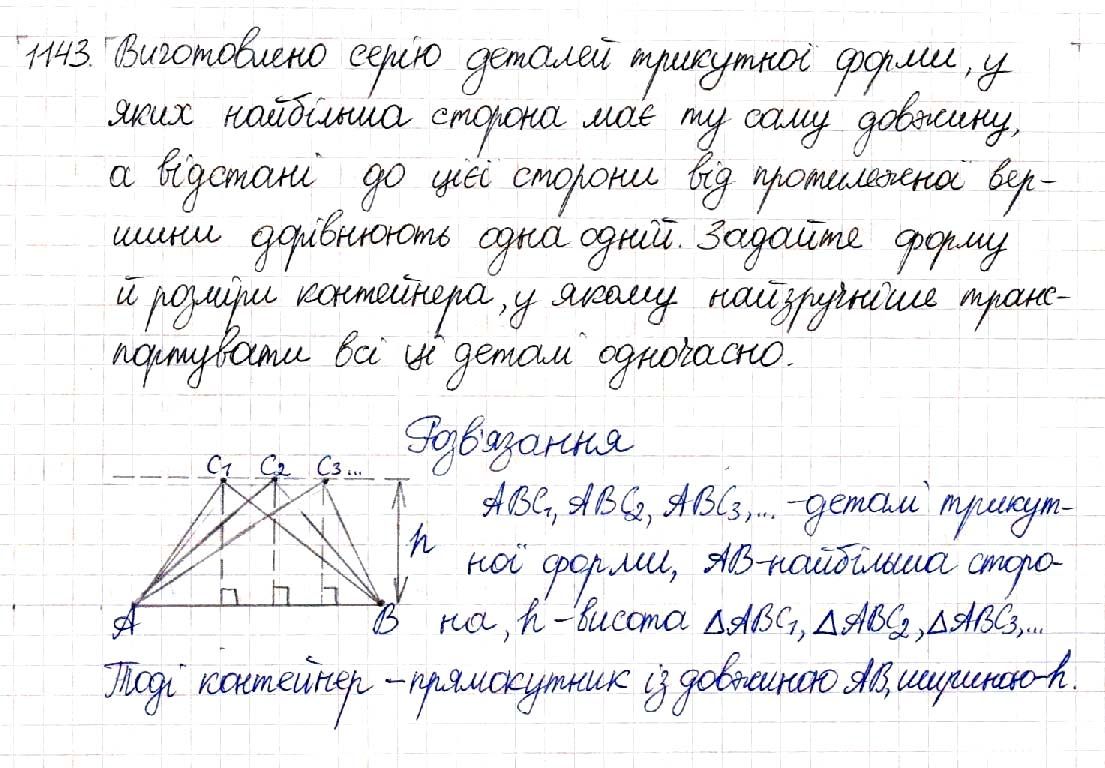 1143. Виготовлено серію деталей трикутної форми, у
яких найбільша сторона має ту саму довжину,
а відстані до цієї сторони від протилежної вер-
шини дорівнюють одна одній. Задайте форму
й розміри контейнера, у якому найзручніше транс-
портувати всі ці деталі одночасно.
Розв'язання
C1 C2 C3...
h
A B
ABC1, ABC2, ABC3,... - деталі трикут-
ної форми, AB-найбільша сторо-
на, h - висота △ABC1, △ABC2, △ABC3,...
Тоді контейнер - прямокутник із довжиною AB, шириною-h.